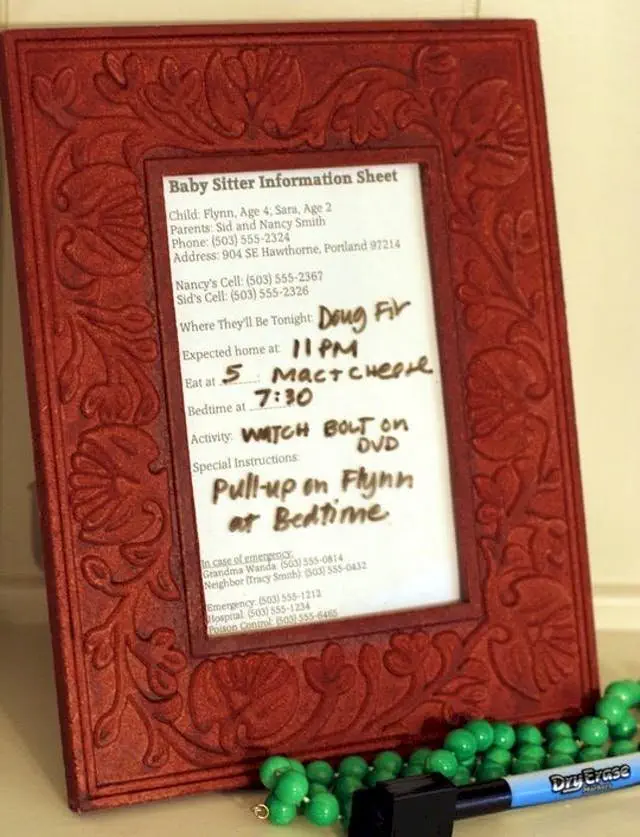 Baby Sitter Information Sheet
Child: Flynn, Age 4; Sara, Age 2
Parents: Sid and Nancy Smith
Phone: (503) 555-2324
Address: 904 SE Hawthorne, Portland 97214
Nancy's Cell: (503) 555-2367
Sid's Cell: (503) 555-2326
Where They'll Be Tonight: Doug Fir
Expected home at: 11 PM
Eat at 5 Mac + Cheese
Bedtime at 7:30
Activity: WATCH BOLT on
DVD
Special Instructions:
Pull-up on Flynn
at Bedtime
In case of emergency:
Grandma Wanda: (503) 555-0814
Neighbor (Tracy Smith): (503) 555-0432
Emergency: (503) 555-1212
Hospital: (503) 555-1234
Poison Control: (503) 555-6465
DryErase
Markers